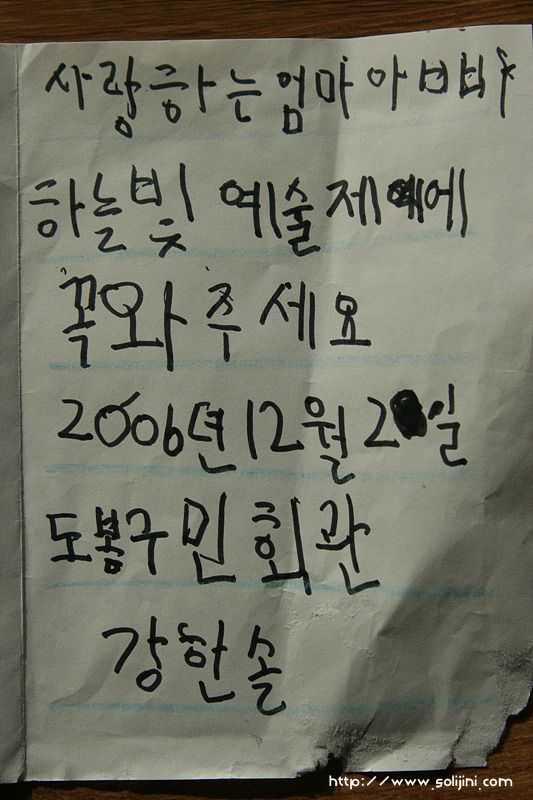 사랑하는엄마아빠
하늘빛 예술제에
꼭와주세요
2006년12월2일
도봉구민회관
강한솔
http://www.solijini.com